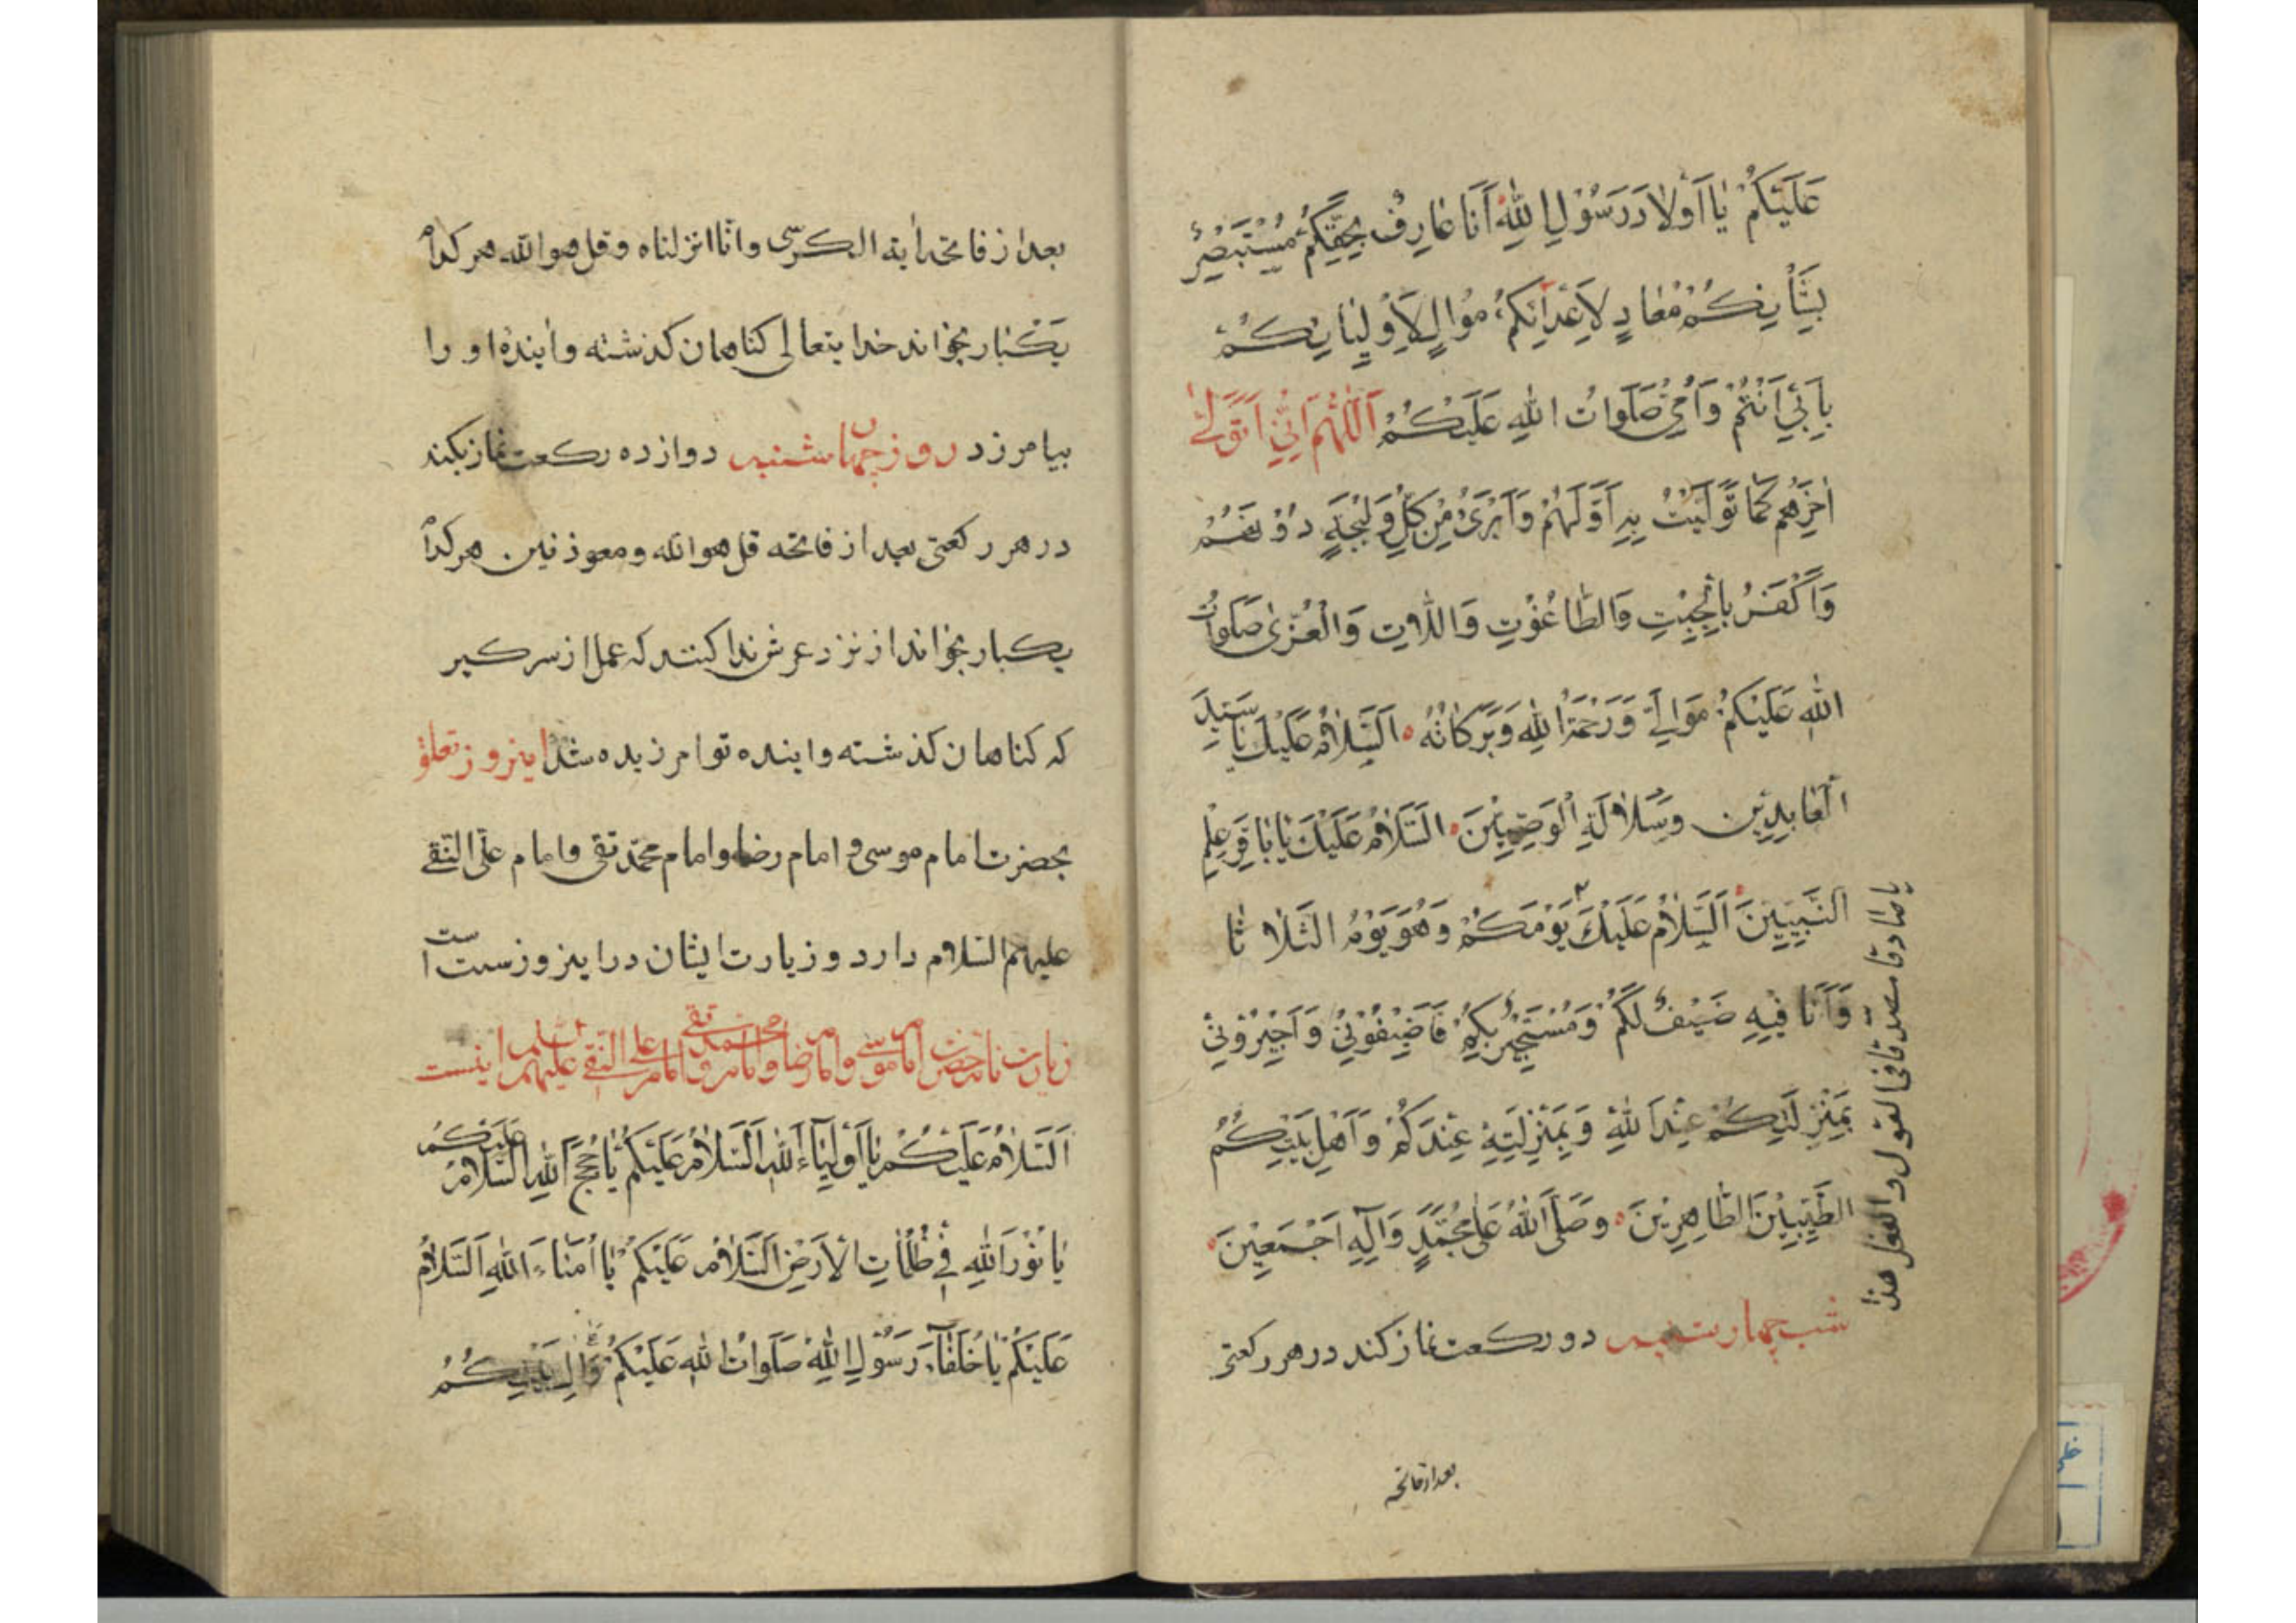 عَلَيْكُمْ يٰا اَوْلٰادَ رَسُوْلِ اللهِ اَنَا عٰارِفٌ بِحَقِّكُمْ مُسْتَبْصِرٌ
بِشَأْنِكُمْ مُعٰادٍ لِاَعْدَائِكُمْ مُوٰالٍ لِاَوْلِيٰائِكُمْ
بِاَبِيْ اَنْتُمْ وَاُمِّيْ صَلَوٰاتُ اللهِ عَلَيْكُمْ اَللّٰهُمَّ اِنِّيْ اَتَوَلّٰى
اٰخِرَهُمْ كَمٰا تَوَلَّيْتُ بِهِ اَوَّلَهُمْ وَاَبْرَئُ مِنْ كُلِّ وَلِيْجَةٍ دُوْنَهُمْ
وَاَكْفُرُ بِالْجِبْتِ وَالطّٰاغُوْتِ وَاللّٰاتِ وَالْعُزّٰى صَلَوٰاتُ
اللهِ عَلَيْكُمْ مَوٰالِيَّ وَرَحْمَةُ اللهِ وَبَرَكٰاتُهُ اَلسَّلٰامُ عَلَيْكَ يٰا سَيِّدَ
الْعٰابِدِيْنَ وَسُلٰالَةَ الْوَصِيِّيْنَ اَلسَّلٰامُ عَلَيْكَ يٰا بٰاقِرَ عِلْمِ
النَّبِيِّيْنَ اَلسَّلٰامُ عَلَيْكَ يَوْمَكُمْ وَهُوَ يَوْمُ الثَّلٰاثٰا
يا صادقا مصدّقا فى القول والفعل هذا
وَاَنَا فِيْهِ ضَيْفٌ لَكُمْ وَمُسْتَجِيْرٌ بِكُمْ فَاَضِيْفُوْنِيْ وَاَجِيْرُوْنِيْ
بِمَنْزِلَتِكُمْ عِنْدَ اللهِ وَبِمَنْزِلَتِهِ عِنْدَكُمْ وَاَهْلِ بَيْتِكُمُ
الطَّيِّبِيْنَ الطّٰاهِرِيْنَ وَصَلَّى اللهُ عَلٰى مُحَمَّدٍ وَاٰلِهِ اَجْمَعِيْنَ
شب چهارشنبه دو ركعت نماز كند در هر ركعتى
بعد از فاتحه
بعد از فاتحه اية الكرسى وانا انزلناه وقل هو الله هر كدام
يكبار بخواند خدايتعالى كناهان كذشته وايندهٔ او را
بيامرزد روز چهارشنبه دوازده ركعت نماز بكند
در هر ركعتى بعد از فاتحه قل هو الله ومعوذتين هر كدام
يكبار بخواند از نزد عرش ندا كنند كه عمل از سر كير
كه كناهان كذشته واينده تو امرزيده شد اينروز تعلق
بحضرت امام موسى و امام رضا وامام محمّد تقى وامام على النّقى
عليهم السّلام دارد و زيارت ايشان در اينروز سنت است
زيارت نامه حضرت امام موسى وامام رضا وامام محمد تقى وامام على النقى عليهم السلم اينست
اَلسَّلٰامُ عَلَيْكُمْ يٰا اَوْلِيٰاءَ اللهِ اَلسَّلٰامُ عَلَيْكُمْ يٰا حُجَجَ اللهِ اَلسَّلٰامُ عَلَيْكُمْ
يٰا نُوْرَ اللهِ فِيْ ظُلُمٰاتِ الْاَرْضِ اَلسَّلٰامُ عَلَيْكُمْ يٰا اُمَنٰاءَ اللهِ اَلسَّلٰامُ
عَلَيْكُمْ يٰا خُلَفٰاءَ رَسُوْلِ اللهِ صَلَوٰاتُ اللهِ عَلَيْكُمْ وَاٰلِ بَيْتِكُمُ